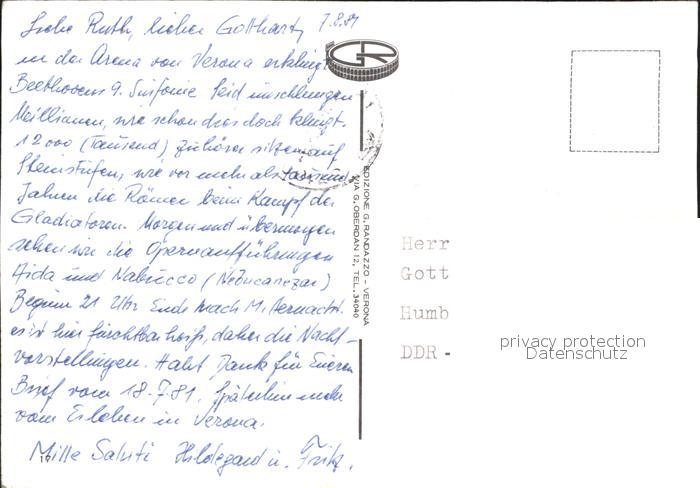 Liebe Ruth, lieber Gotthard, 7.8.81
in der Arena von Verona erklingt
Beethovens 9. Sinfonie Seid umschlungen
Millionen, wie schön das doch klingt.
12000 (Tausend) Zuhörer sitzen auf
Steinstufen, wie vor mehr als tausend
Jahren die Römer beim Kampf der
Gladiatoren. Morgen und übermorgen
sehen wir die Opernaufführungen
Aida und Nabucco (Nebucanezar)
Beginn 21 Uhr Ende nach Mitternacht.
es ist hier furchtbar heiß, daher die Nacht-
vorstellungen. Habt Dank für Eueren
Brief vom 18.7.81. Späterhin mehr
vom Erleben in Verona.
Mille Saluti Hildegard u. Fritz.
GR
EDIZIONE G. RANDAZZO - VERONA
VIA G. OBERDAN 12, TEL. 34040
Herr
Gott
Humb
DDR -
privacy protection
Datenschutz